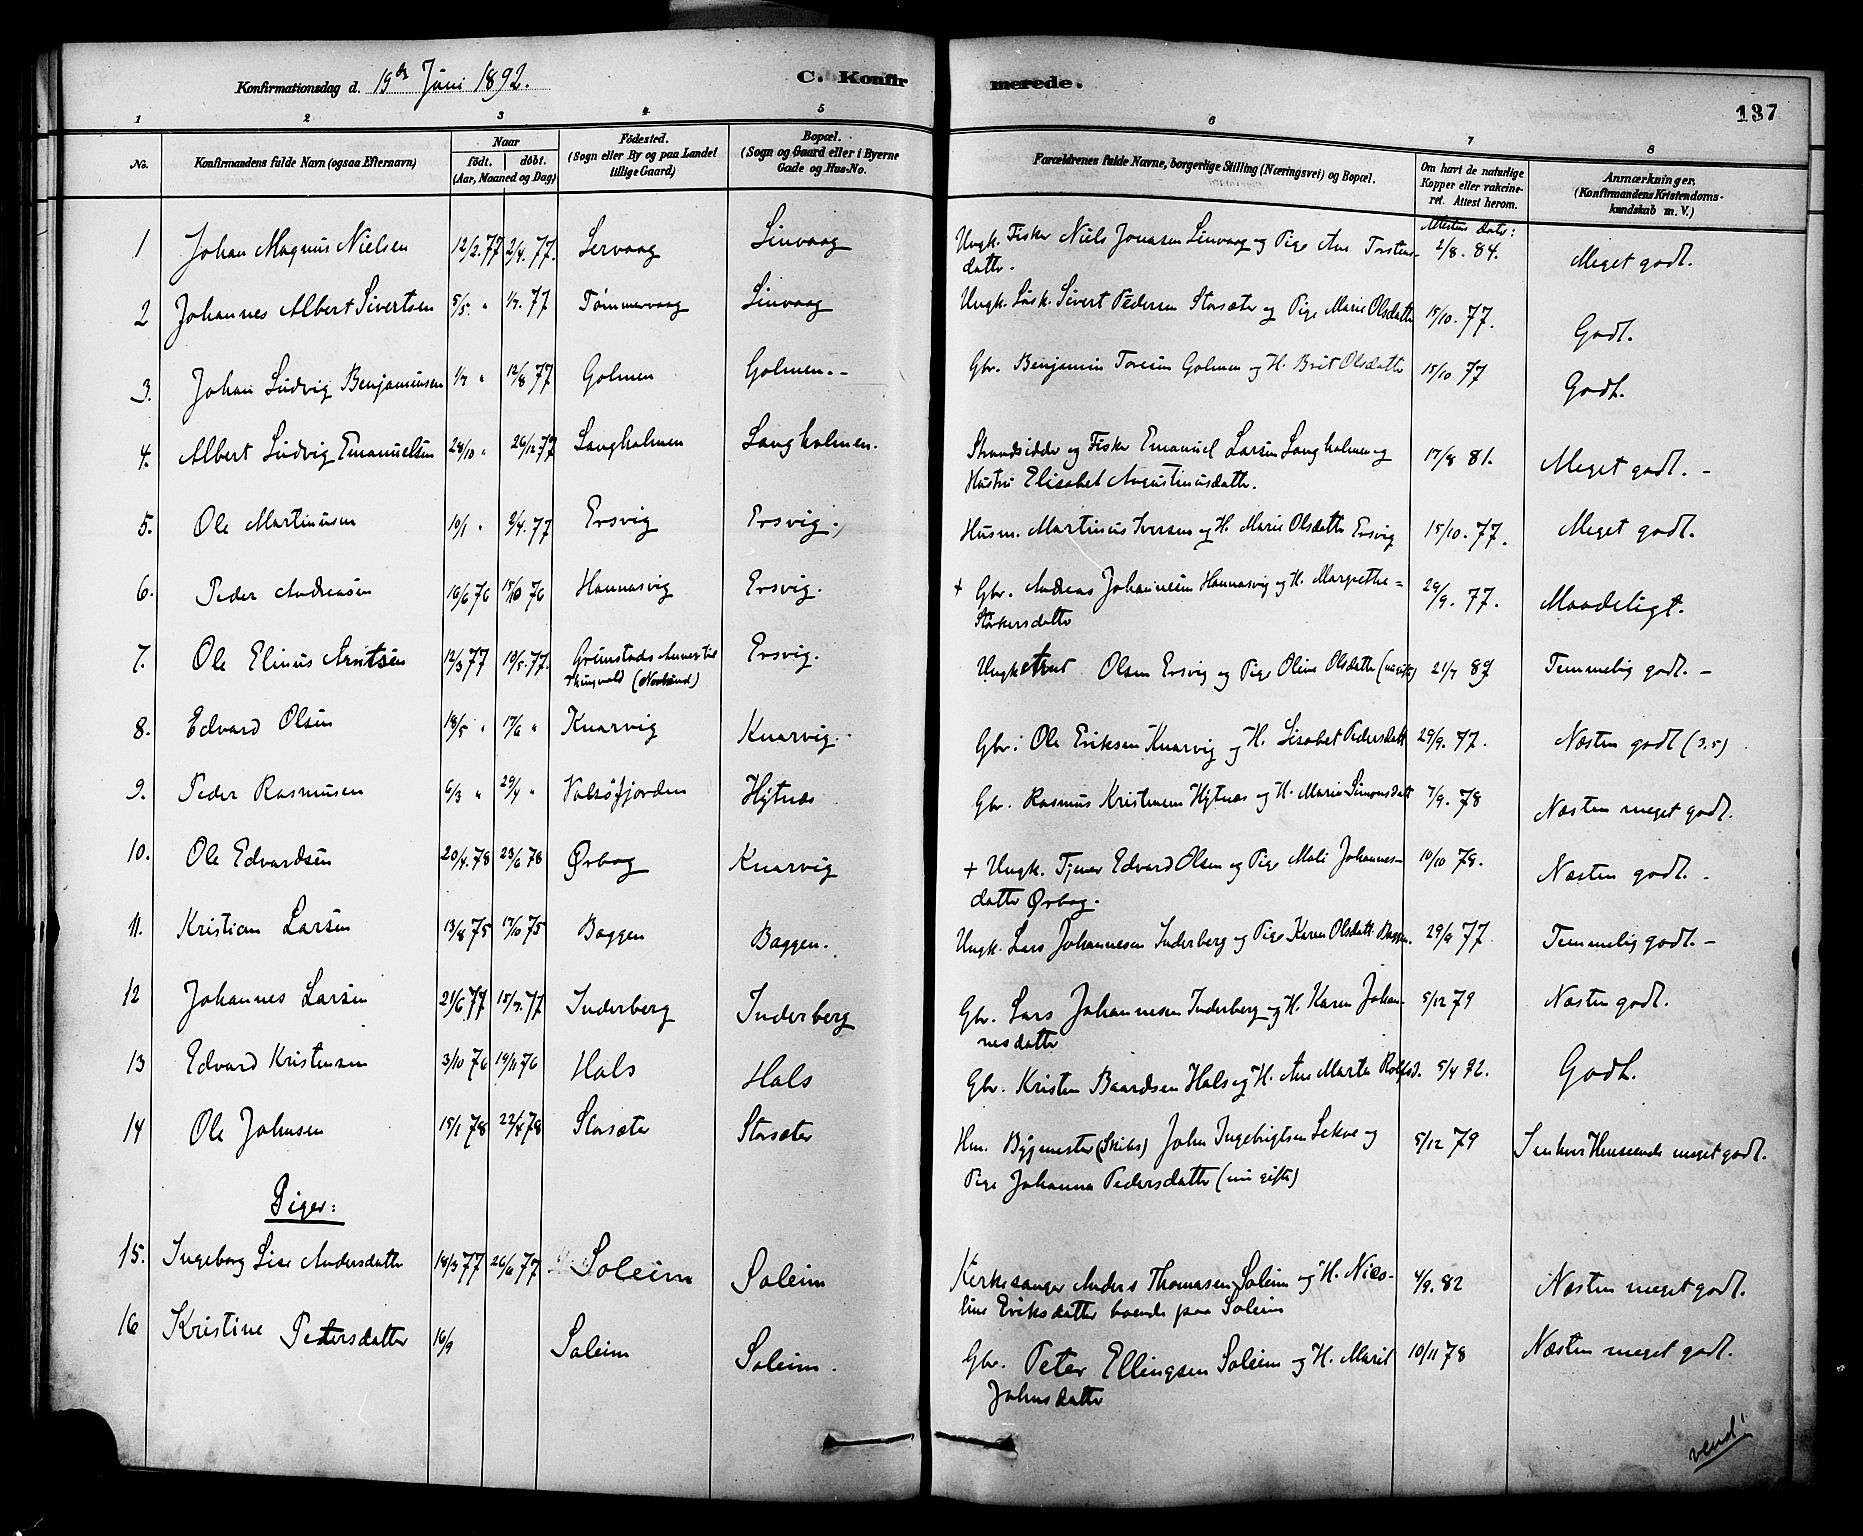 Konfirmationsdag d. 19de Juni 1892.
C. Konfirmerede.
137
1 2 3 4 5 6 7 8
No. Konfirmandens fulde Navn (ogsaa Efternavn) Naar født. døbt. (Aar, Maaned og Dag) Fødested. (Sogn eller By og paa Landet tillige Gaard) Bopæl. (Sogn og Gaard eller i Byerne Gade og Hus-No. Forældrenes fulde Navne, borgerlige Stilling (Næringsvei) og Bopæl. Om havt de naturlige Kopper eller vakcineret. Attest herom. Anmærkninger. (Konfirmandens Kristendomskundskab m. V.)
Attestens dato:
1 Johan Magnus Nielsen 12/2.77 2/4.77. Lervaag Linvaag Ungk. Fisker Niels Jonasen Linvaag og Pige Ane Torstens- 2/8.84. Meget godt.
datter.
2 Johannes Albert Sivertsen 5/5. " 1/7.77 Tømmervaag Linvaag Ungk. Løsk. Sivert Pedersen Storsæter og Pige Marie Olsdatter 15/10.77. Godt.
3. Johan Ludvig Benjaminsen 1/7 " 12/8 77 Golmen Golmen.- Gbr. Benjamin Toresen Golmen og H. Brit Olsdatter 15/10 77 Godt.
4. Albert Ludvig Emanuelsen 28/10 " 26/12 77 Langholmen Langholmen. Strandsidder og Fisker Emanuel Larsen Langholmen og 17/8 81. Meget godt. -
Hustru Elisabet Augustinusdatter.
5. Ole Martinusen 10/1 " 2/4.77 Ersvig Ersvig. Husm. Martinus Iversen og H. Marie Olsdatter Ersvig 15/10.77. Meget godt.
6. Peder Andreasen 16/6 76 15/10 76 Hannasvig Ersvig. + Gbr. Andreas Johannesen Hannasvig og H. Margrethe= 29/9.77. Maadeligt.
Størkersdatter
7. Ole Elinus Arntsen 12/3 77 19/5.77. Grimstads Annex til Ersvig. Ungk. Arnt Olsen Ersvig og Pige Oline Olsdatter 21/7 89 Temmelig godt. -
8. Edvard Olsen 18/5 " 17/6 " Knarvig Knarvig. Gbr. Ole Eriksen Knarvig og H. Lisabet Pedersdatt 29/9.77. Næsten godt (3.5)
9. Peder Rasmusen 6/3 " 29/4 " Valsøfjorden Hytnæs Gbr. Rasmus Kristensen Hytnæs og H. Marie Simonsdatt 7/9.78 Næsten meget godt.
10. Ole Edvardsen 20/4.78 23/6 78 Ørbog Knarvig + Ungk. Tjener Edvard Olsen og Pige Mali Johannes- 10/10 78. Næsten godt. -
datter Ørbog.
11. Kristian Larsen 13/8 75 17/10 75 Baggen Baggen. Ungk. Lars Johannesen Inderberg og Pige Karen Olsdatt Baggen. 29/9 77 Temmelig godt. -
12 Johannes Larsen 21/6 77 15/7.77 Inderberg Inderberg Gbr. Lars Johannesen Inderberg og H. Karen Johan- 5/12 79 Næsten godt.
nesdatter
13 Edvard Kristensen 3/10 76 19/11 76 Hals Hals Gbr. Kristen Baardsen Hals og H. Ane Marta Rolfsd. 5/4 92. Godt.
14 Ole Johnsen 15/1 78 22/4 78 Storsæter Storsæter Hm. Bygmester (Skibs) John Ingebrigtsen Lekve og 5/12 79 I enhver Henseende meget godt.
Pige Johanna Pedersdatter (nu gifte)
Piger:
15. Ingeborg Lise Andersdatter 18/3 77 26/6 77 Soleim Soleim Kirkesanger Anders Thomasen Soleim og H. Nico- 4/9.82 Næsten meget godt.
line Eriksdatter boende paa Soleim
16 Kristine Pedersdatter 16/9 Soleim Soleim. Gbr. Peter Ellingsen Soleim og H. Marit 10/11 78 Næsten meget godt.
Johnsdatter
vend!